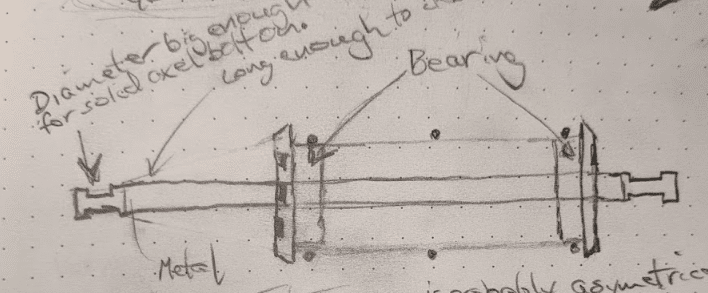 Diameter big enough
for solid axel bolt on.
Long enough to
Bearing
Metal
probably asymetric